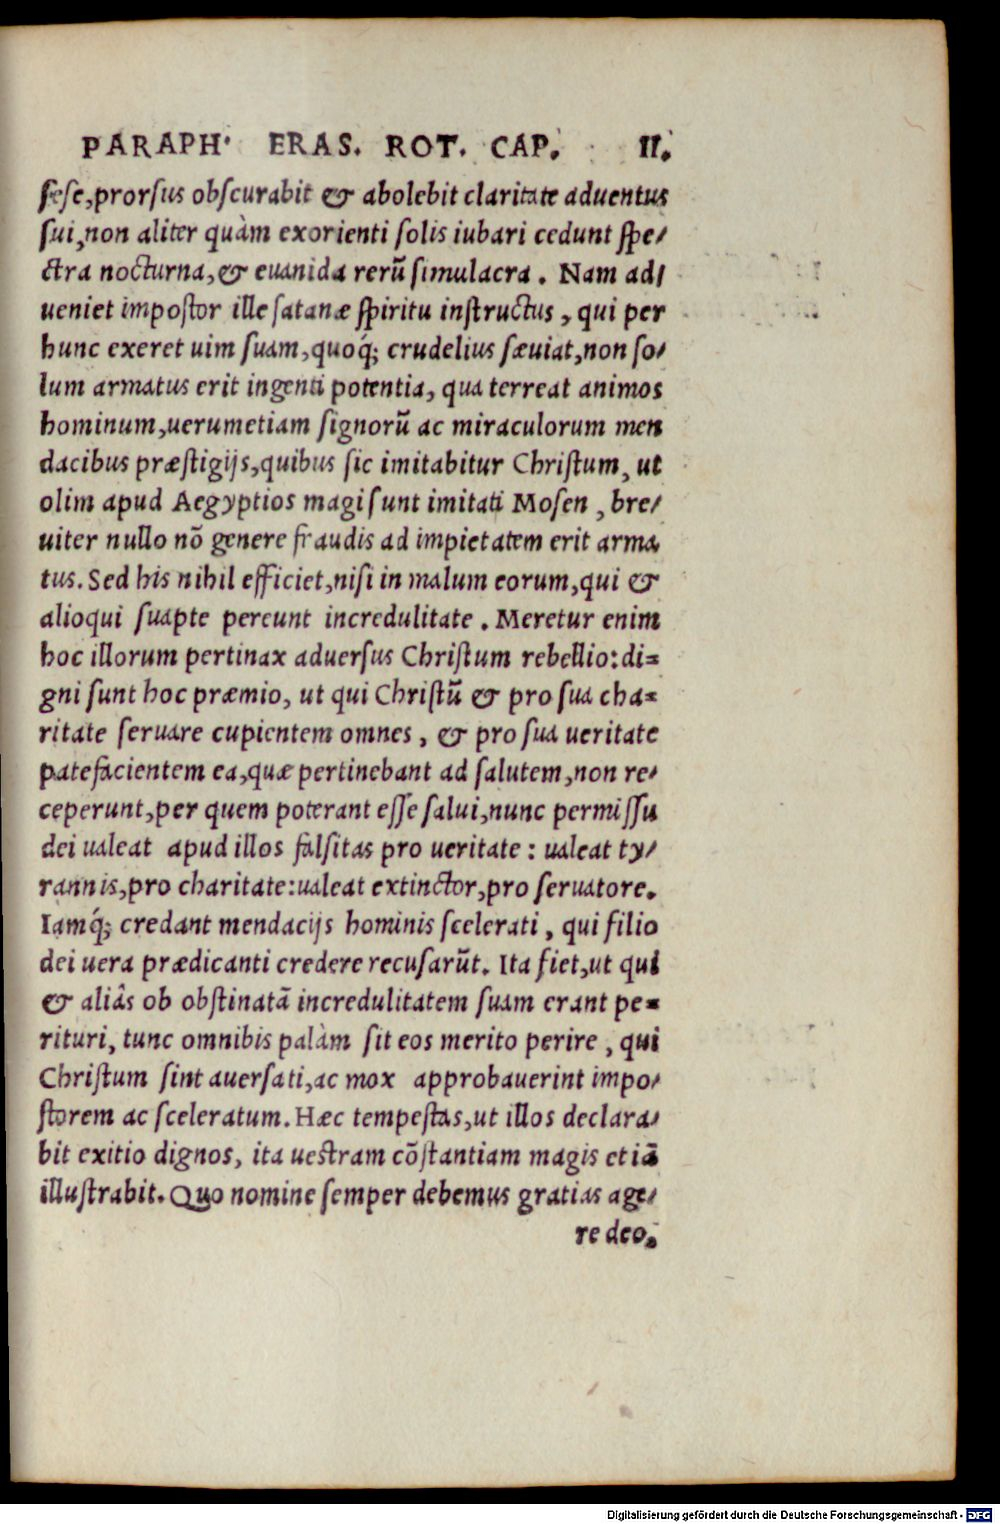 PARAPH. ERAS. ROT. CAP. II.
ſeſe, prorſus obſcurabit & abolebit claritate aduentus
ſui, non aliter quàm exorienti ſolis iubari cedunt ſpe/
ctra nocturna, & euanida rerũ ſimulacra. Nam ad/
ueniet impoſtor ille ſatanæ ſpiritu inſtructus, qui per
hunc exeret uim ſuam, quoq́; crudelius ſæuiat, non ſo/
lum armatus erit ingenti potentia, qua terreat animos
hominum, uerumetiam ſignorũ ac miraculorum men
dacibus præſtigijs, quibus ſic imitabitur Chriſtum, ut
olim apud Aegyptios magi ſunt imitati Moſen, bre/
uiter nullo nõ genere fraudis ad impietatem erit arma
tus. Sed his nihil efficiet, niſi in malum eorum, qui &
alioqui ſuapte pereunt incredulitate. Meretur enim
hoc illorum pertinax aduerſus Chriſtum rebellio: di=
gni ſunt hoc præmio, ut qui Chriſtũ & pro ſua cha=
ritate ſeruare cupientem omnes, & pro ſua ueritate
patefacientem ea, quæ pertinebant ad ſalutem, non re/
ceperunt, per quem poterant eſſe ſalui, nunc permiſſu
dei ualeat apud illos falſitas pro ueritate: ualeat ty/
rannis, pro charitate: ualeat extinctor, pro ſeruatore.
Iamq́; credant mendacijs hominis ſcelerati, qui filio
dei uera prædicanti credere recuſarũt. Ita fiet, ut qui
& aliâs ob obſtinatã incredulitatem ſuam erant pe=
rituri, tunc omnibis palàm ſit eos merito perire, qui
Chriſtum ſint auerſati, ac mox approbauerint impo/
ſtorem ac ſceleratum. Hæc tempeſtas, ut illos declara/
bit exitio dignos, ita ueſtram cõſtantiam magis etiã
illuſtrabit. Quo nomine ſemper debemus gratias age/
re deo.
Digitalisierung gefördert durch die Deutsche Forschungsgemeinschaft - DFG